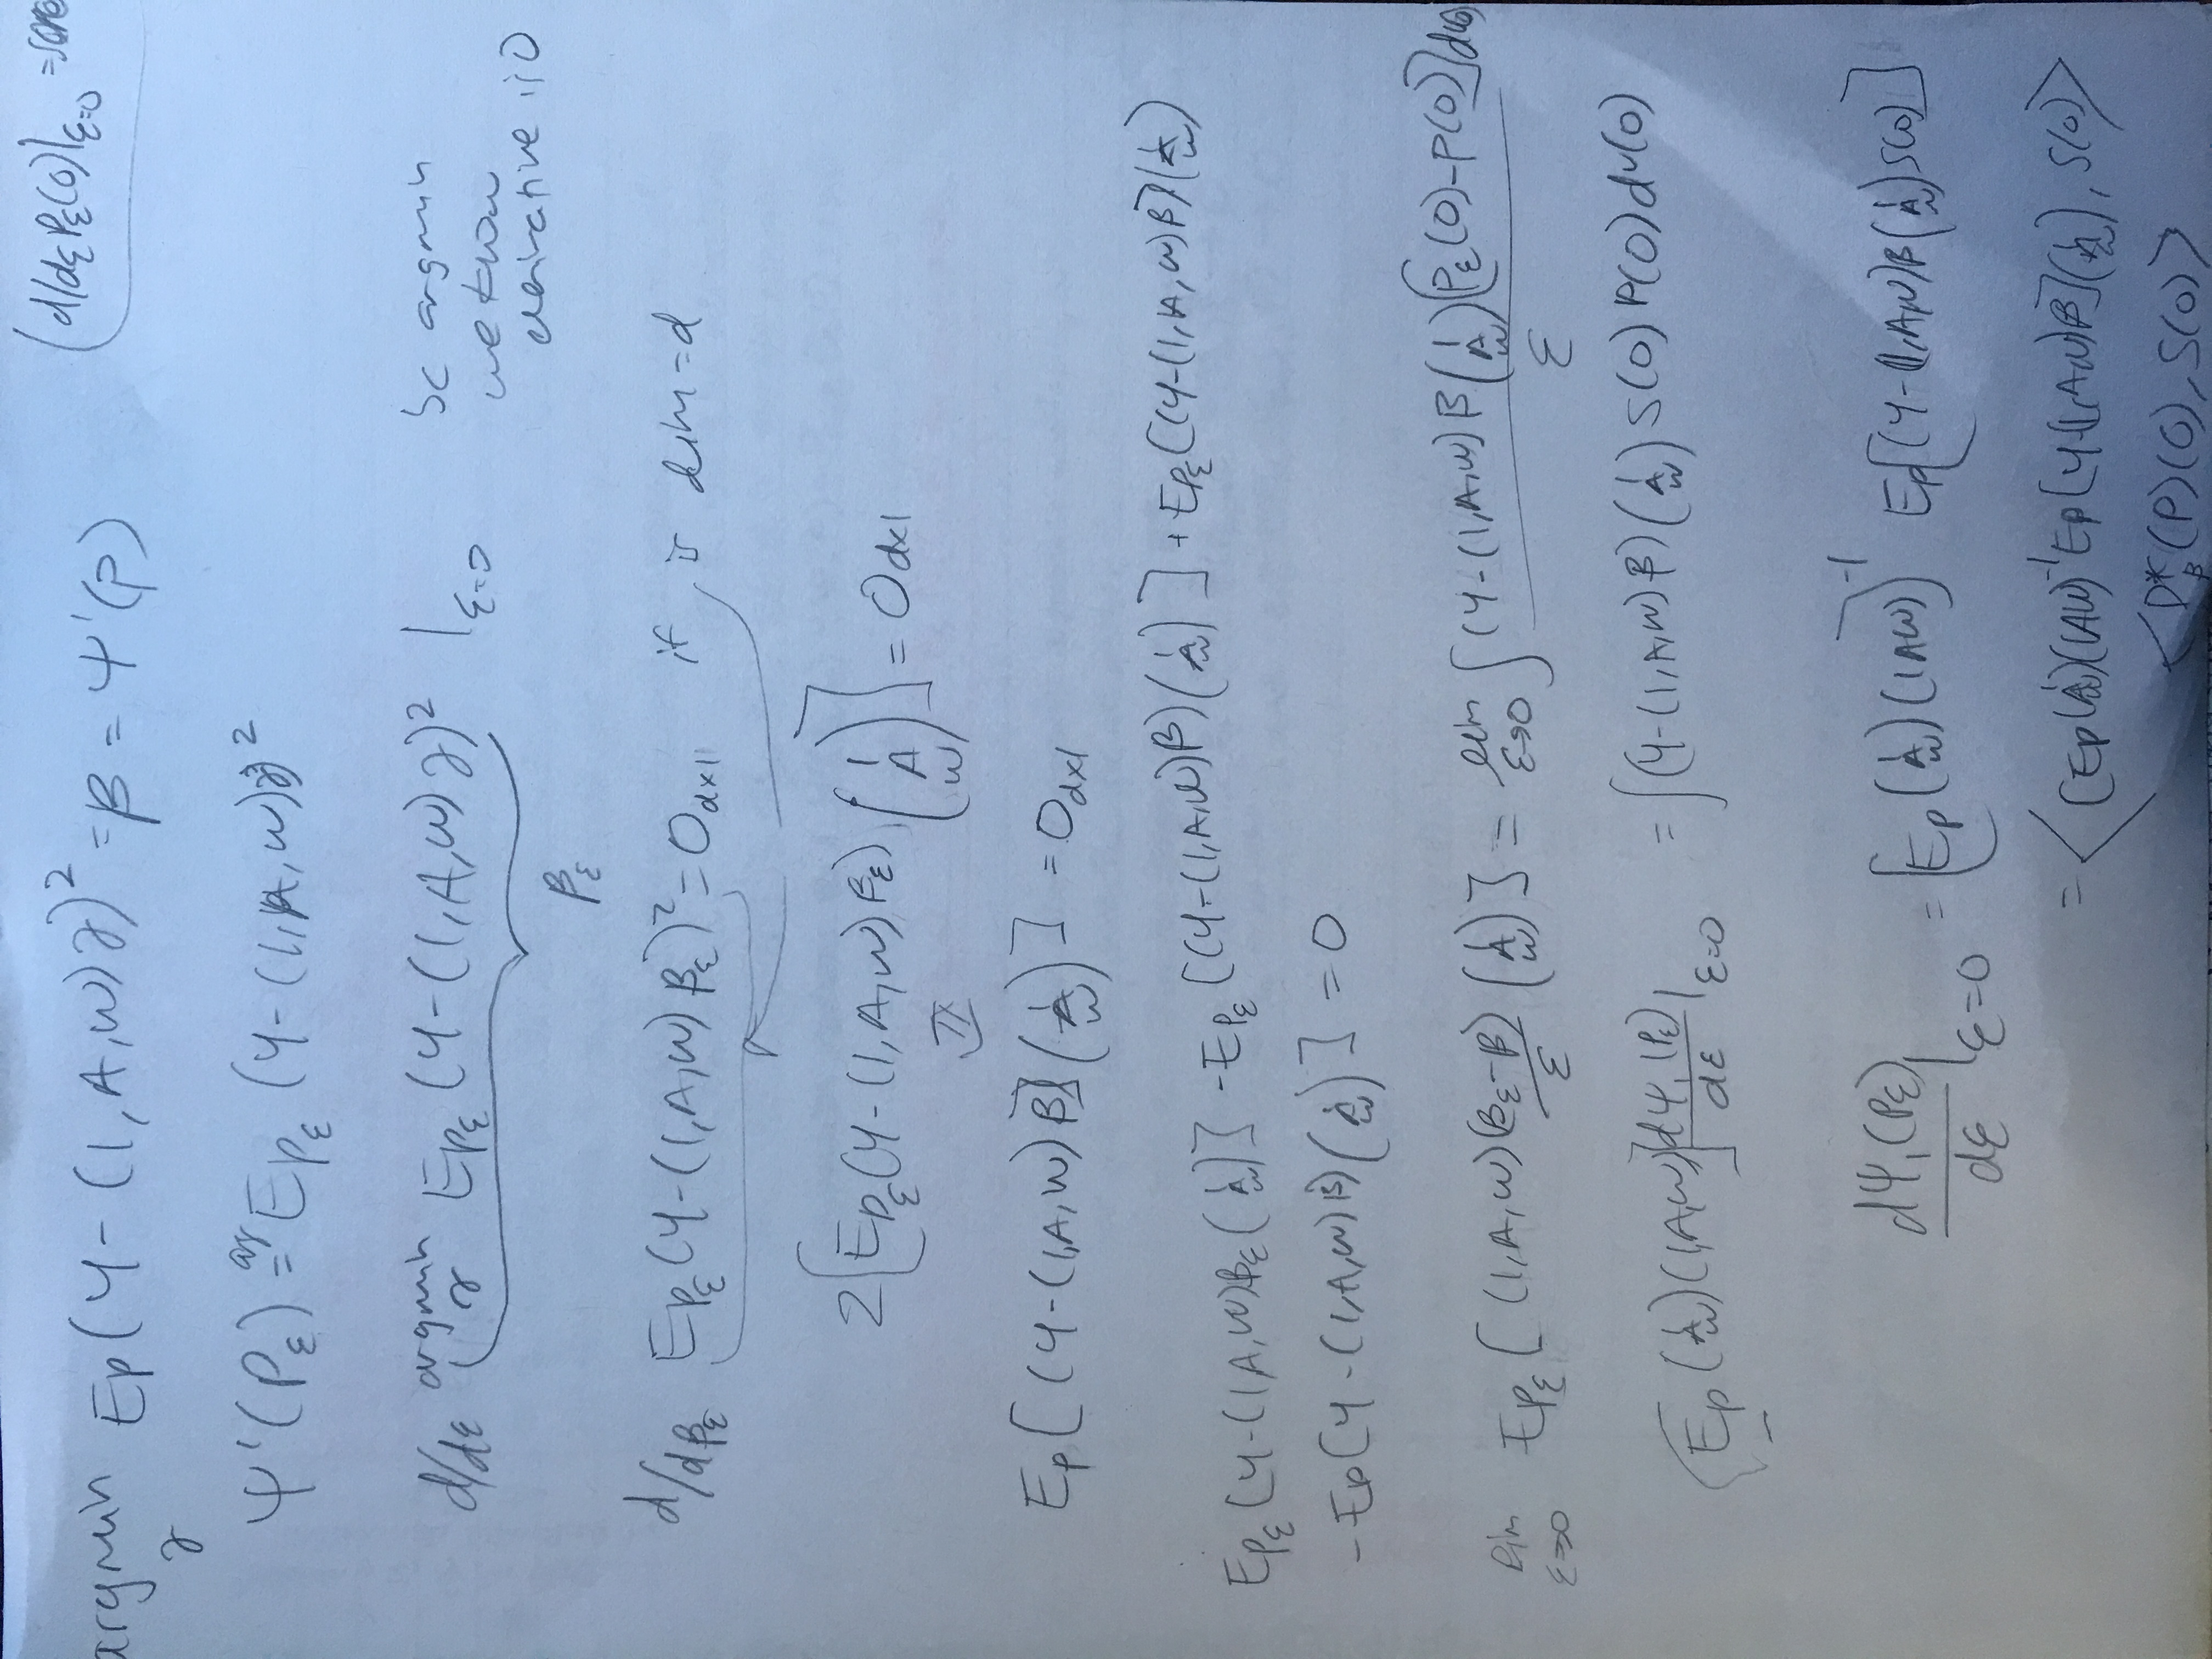 (d/dε Pε(O)|ε=0 = score
argmin γ Ep(Y - (1, A, W)γ)² = β = Ψ'(P)
Ψ'(Pε) =arg EPε (Y - (1, A, W)γ)²
d/dε argmin γ EPε (Y - (1, A, W)γ)² |ε=0
βε
bc argmin
we know
derivative is 0
d/dβε EPε(Y - (1, A, W)βε)² = 0dx1 if is dim = d
2[EPε(Y - (1, A, W)βε)(1 A W)] = 0dx1
Ep[(Y - (1, A, W)β](1 A W)] = 0dx1
EPε[Y - (1 A, W)βε(1 A W)] - EPε[(Y - (1, A, W)β)(1 A W)] + EPε[(Y - (1, A, W)β](1 A W)
- Ep[Y - (1, A, W)β)(1 A W)] = 0
lim ε→0 EPε[(1, A, W)(βε - β)/ε (1 A W)] = lim ε→0 ∫ (Y - (1, A, W)β(1 A W)[Pε(O) - P(O)]dν(O) / ε
[Ep(1 A W)(1, A, W)] dΨ1(Pε)/dε |ε=0 = ∫(Y - (1, A, W)β)(1 A W) S(O) P(O) dν(O)
dΨ1(Pε)/dε |ε=0 = [Ep(1 A W)(1 A W)]⁻¹ Ep[(Y - (1, A, W)β(1 A W)S(O)]
= <[Ep(1 A W)(1 A W)⁻¹ Ep[Y - (1, A, W)β](1 A W), S(O)>
<D*β(P)(O), S(O)>